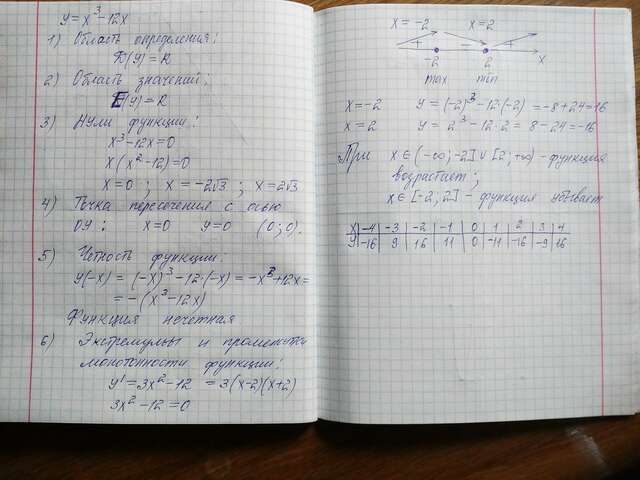 y = x³ - 12x
1) Область определения:
D(y) = R
2) Область значений:
E(y) = R
3) Нули функции:
x³ - 12x = 0
x(x² - 12) = 0
x = 0 ; x = -2√3 ; x = 2√3
4) Точка пересечения с осью
OY : x = 0 y = 0 (0; 0).
5) Четность функции:
y(-x) = (-x)³ - 12·(-x) = -x³ + 12x =
= -(x³ - 12x)
Функция нечетная
6) Экстремумы и промежутки
монотонности функции:
y' = 3x² - 12 = 3(x-2)(x+2)
3x² - 12 = 0
x = -2 x = 2
+ - +
-2 2 x
max min
x = -2 y = (-2)³ - 12·(-2) = -8 + 24 = 16
x = 2 y = 2³ - 12·2 = 8 - 24 = -16
При x ∈ (-∞; -2] ∪ [2; +∞) - функция
возрастает;
x ∈ [-2; 2] - функция убывает
x -4 -3 -2 -1 0 1 2 3 4
y -16 9 16 11 0 -11 -16 -9 16